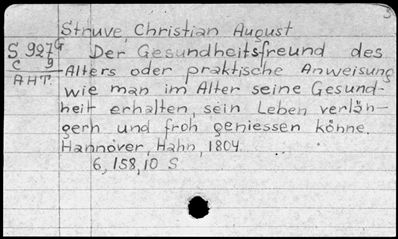 Struve, Christian August
S 927 G
C 9
AHT.
Der Gesundheitsfreund des
Alters oder praktische Anweisung
wie man im Alter seine Gesund-
heit erhalten, sein Leben verlän-
gern und froh geniessen könne.
Hannover, Hahn, 1804.
6, 158, 10 S